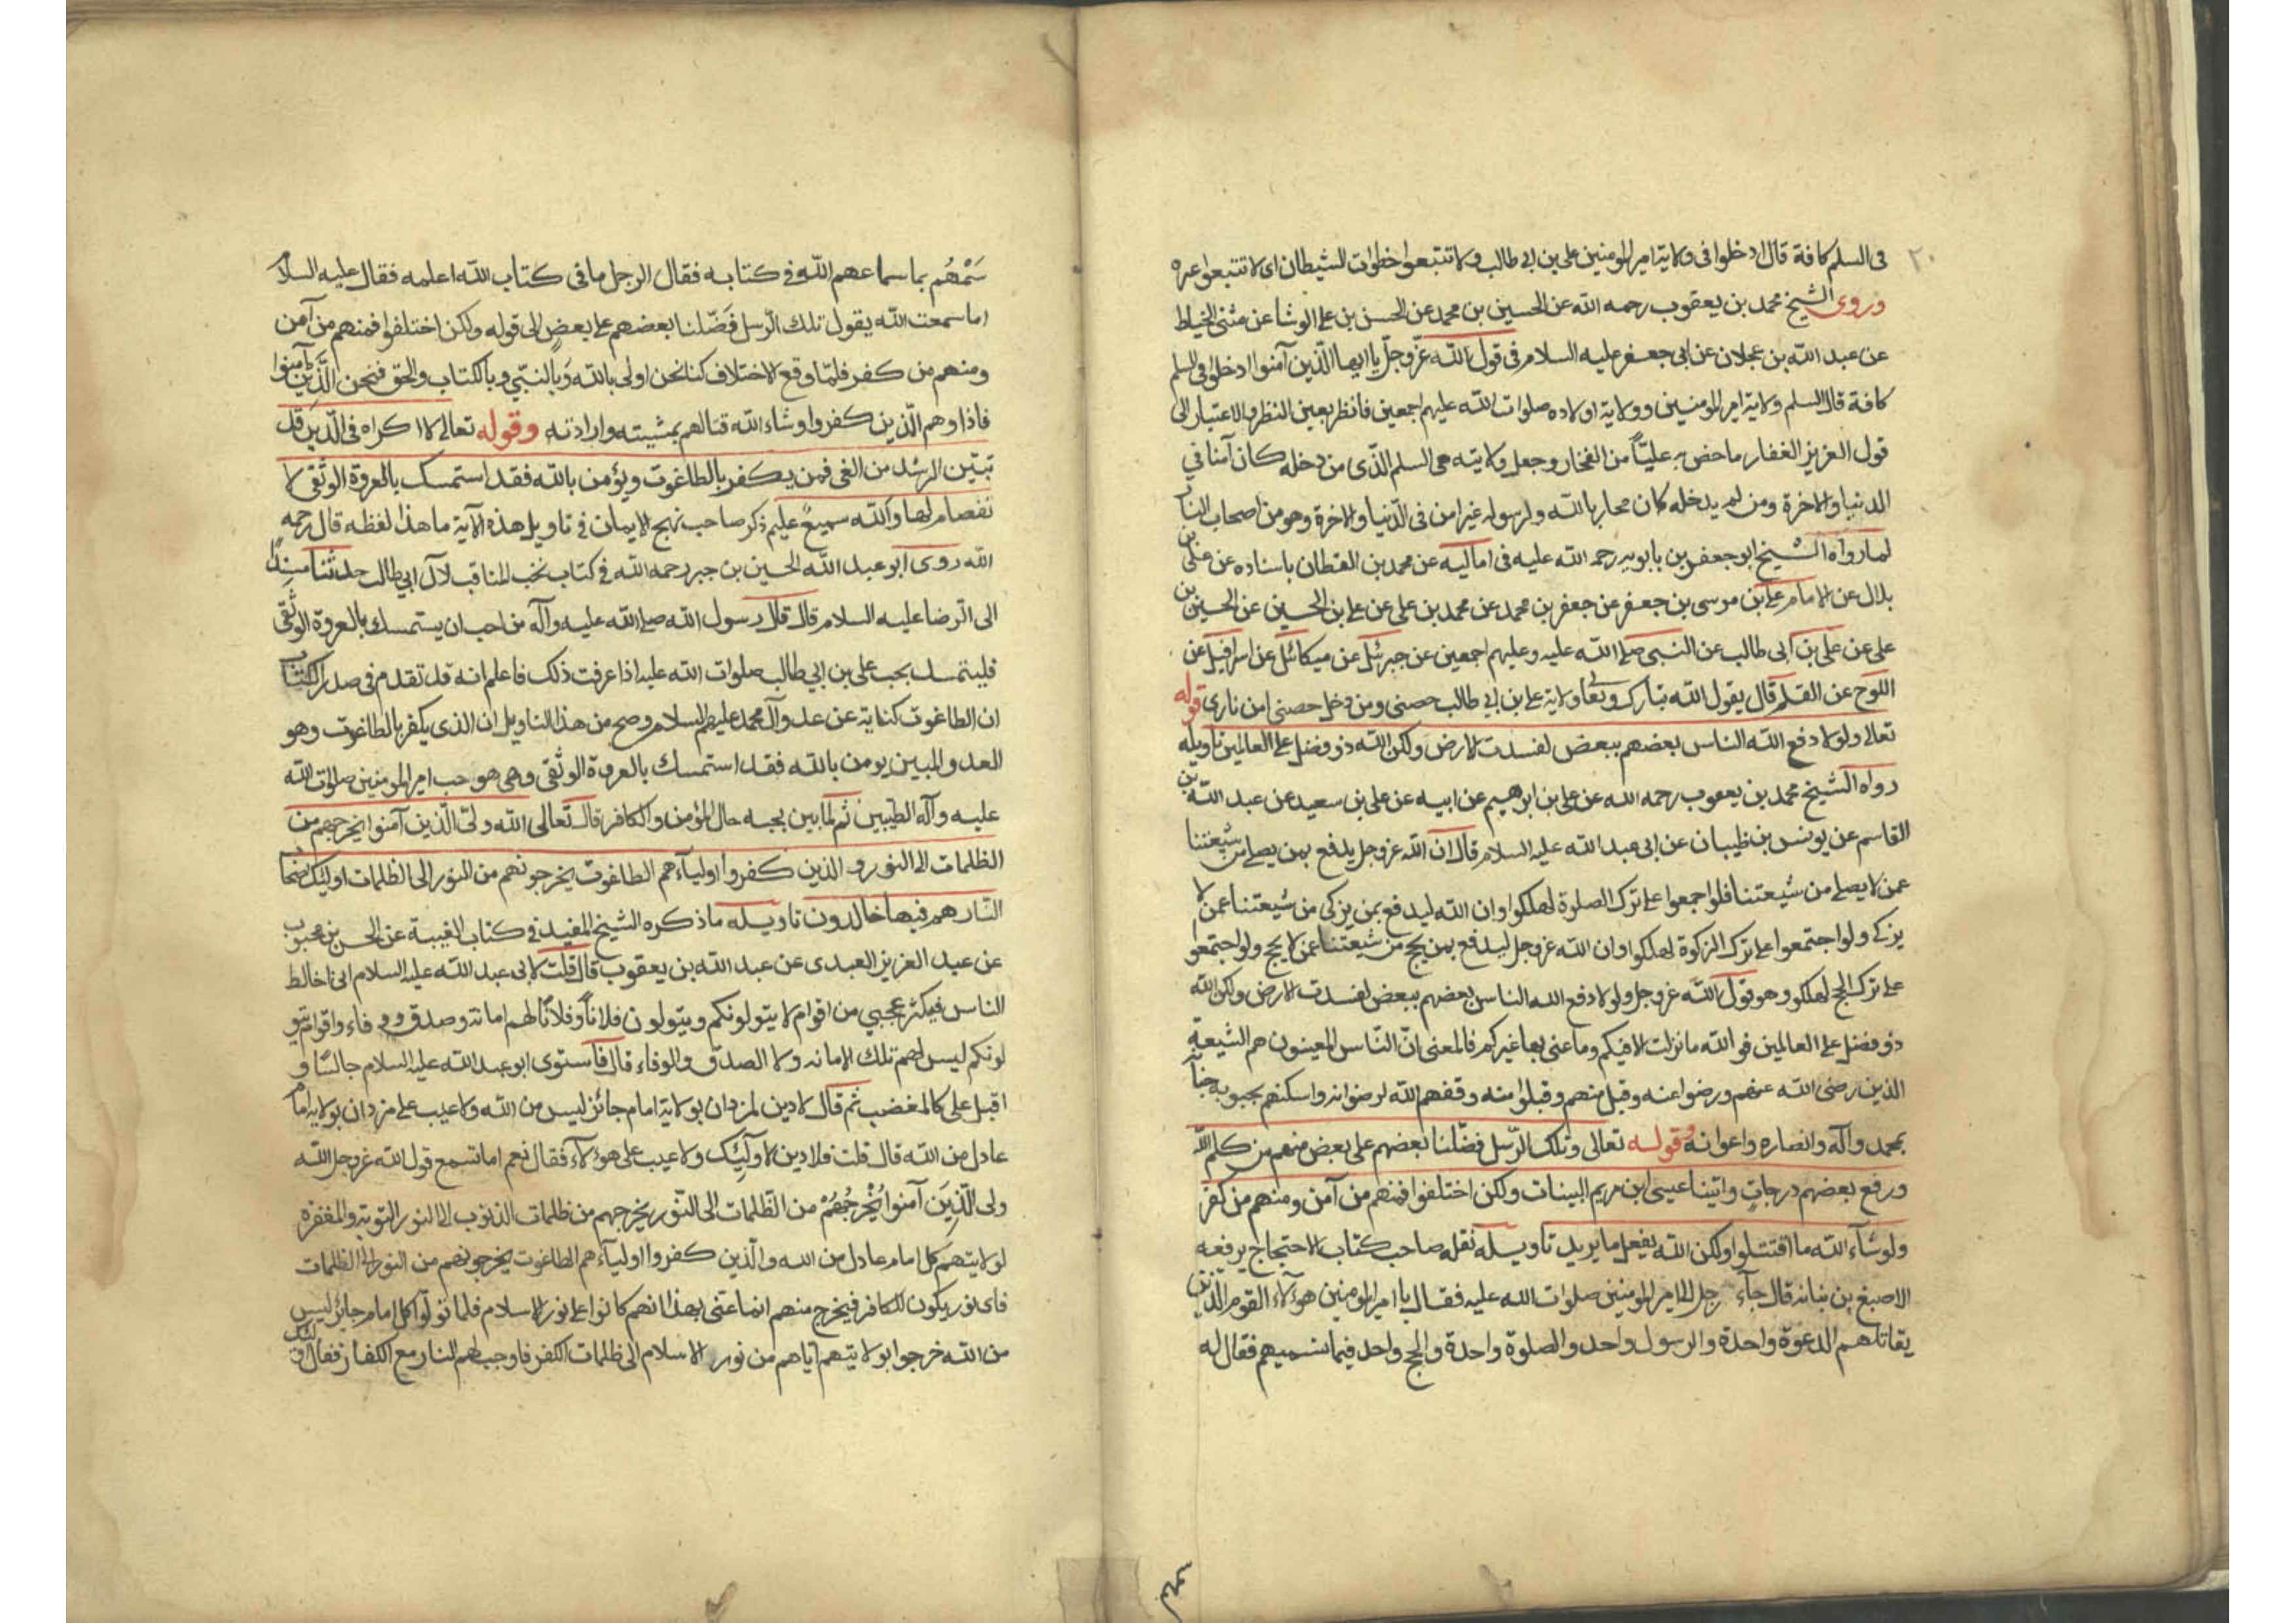 ٢٠
فى السلم كافة قال ادخلوا فى ولاية امير المومنين على بن ابى طالب ولا تتبعوا خطوات الشيطان اى لا تتبعوا غيره
وروى الشيخ محمد بن يعقوب رحمه الله عن الحسين بن محمد عن الحسن بن على الوشا عن مثنى الخياط
عن عبد الله بن عجلان عن ابى جعفر عليه السلام فى قول الله عزّوجلّ يا ايها الّذين آمنوا ادخلوا فى السلم
كافة قال السلم ولاية امير المومنين وولاية اولاده صلوات الله عليهم اجمعين فانظر بعين النظر والاعتبار الى
قول العزيز الغفار ما خص به عليّاً من الفخار وجعل ولايته هى السلم الذّى من دخله كان آمنا في
الدنيا والاخرة ومن لم يدخله كان محاربا لله ولرسوله غير امن فى الدّنيا والاخرة وهو من اصحاب النار
لما رواه الشيخ ابو جعفر بن بابويه رحمه الله عليه فى اماليه عن محمد بن القطان باسناده عن على بن
بلال عن الامام على بن موسى بن جعفر عن جعفر بن محمد عن محمد بن على عن على بن الحسين عن الحسين بن
على عن على بن ابى طالب عن النبى صلى الله عليه وعليهم اجمعين عن جبرئيل عن ميكائيل عن اسرافيل عن
اللوح عن القلم قال يقول الله تبارك وتعالى ولاية على بن ابي طالب حصنى ومن دخل حصنى امن نارى قوله
تعالى ولولا دفع الله الناس بعضهم ببعض لفسدت الارض ولكن الله ذو فضل على العالمين تاويله
رواه الشيخ محمد بن يعقوب رحمه الله عن على بن ابرهيم عن ابيه عن على بن سعيد عن عبد الله بن
القاسم عن يونس بن ظبيان عن ابى عبد الله عليه السلام قال ان الله عزوجل يدفع بمن يصلى من شيعتنا
عمن لا يصلى من شيعتنا فلو اجمعوا على ترك الصلوة لهلكوا وان الله ليدفع بمن يزكى من شيعتنا عمن لا
يزكى ولو اجتمعوا على ترك الزكوة لهلكوا وان الله عزوجل ليدفع بمن يحج من شيعتنا عمن لا يحج ولو اجتمعو
على ترك الحج لهلكو وهو قول الله عزوجل ولولا دفع الله الناس بعضهم ببعض لفسدت الارض ولكن الله
ذو فضل على العالمين فو الله ما نزلت الا فيكم وما عنى بها غيركم فالمعنى انّ النّاس المعينون هم الشيعة
الذين رضى الله عنهم ورضوا عنه وقبل منهم وقبلوا منه وقفهم الله لرضوانه واسكنهم بحبوبه جنانه
بمحمد وآله وانصاره واعوانه وقوله تعالى وتلك الرّسل فضّلنا بعضهم على بعض منهم من كلم الله
ورفع بعضهم درجات واتينا عيسى ابن مريم البينات ولكن اختلفوا فمنهم من آمن ومنهم من كفر
ولو شآء الله ما اقتتلوا ولكن الله يفعل ما يريد تاويله نقله صاحب كتاب الاحتجاج يرفعه
الاصبغ بن نباته قال جآء رجل الى امير المومنين صلوات الله عليه فقال يا امير المومنين هؤلاء القوم الّذين
يقاتلهم الدعوة واحدة والرسول واحد والصلوة واحدة والحج واحد فيما نسميهم فقال له
سَمّهُم بما سماهم الله في كتابه فقال الرجل ما فى كتاب الله اعلمه فقال عليه السلام
اما سمعت الله يقول تلك الرّسل فَضّلنا بعضهم على بعضٍ الى قوله ولكن اختلفوا فمنهم من آمن
ومنهم من كفر فلمّا وقع الاختلاف كنا نحن اولى بالله وَبالنبيّ وبالكتاب والحق فنحن الّذين آمنوا
فاذا وهم الّذين كفروا وشاء الله قتالهم بمشيته وارادته وقوله تعالى لا اكراه فى الدّين قد
تبيّن الرشد من الغى فمن يكفر بالطاغوت ويؤمن بالله فقد استمسك بالعروة الوثقى لا
نفصام لها والله سميعٌ عليم ذكر صاحب نهج الايمان في تاويل هذه الآية ما هذا لفظه قال رحمه
الله روى ابو عبد الله الحسين بن جبر رحمه الله في كتاب نخب المناقب لآل ابي طالب حدثنا مسنداً
الى الرضا عليه السلام قال قال رسول الله صلى الله عليه وآله من احب ان يستمسك بالعروة الوثقى
فليتمسك بحب على بن ابي طالب صلوات الله عليه اذا عرفت ذلك فاعلم انه قد تقدم فى صدر الكتاب
ان الطاغوت كناية عن عدو آل محمد عليهم السلام وصح من هذا التاويل ان الذى يكفر بالطاغوت وهو
العدو المبين يومن بالله فقد استمسك بالعروة الوثقى وهى هو حب امير المومنين صلوات الله
عليه وآله الطيبين ثم لما بين بحبه حال المؤمن والكافر قال تعالى الله ولىّ الّذين آمنوا يخرجهم من
الظلمات الى النور و الذين كفروا اوليآءهم الطاغوت يخرجونهم من النور الى الظلمات اوليك اصحاب
النّار هم فيها خالدون تاويله ما ذكره الشيخ المفيد في كتاب الغيبة عن الحسن بن محبوب
عن عبد العزيز العبدى عن عبد الله بن يعقوب قال قلت لابى عبد الله عليه السلام انى اخالط
الناس فيكثر عجبي من اقوام لا يتولونكم ويتولون فلاناً وفلاناً لهم امانه وصدق ووفاء واقوام يتو
لونكم ليس لهم تلك الامانه ولا الصدق والوفاء قال فاستوى ابو عبد الله عليه السلام جالسًا و
اقبل على كالمغضب ثم قال لا دين لمن دان بولاية امام جائز ليس من الله ولا عيب على من دان بولاية امام
عادل من الله قال قلت فلا دين لاوليك ولا عيب على هؤلآء فقال نعم اما تسمع قول الله عزوجل الله
ولى الّذِينَ آمنوا يُخْرِجُهُمْ من الظّلمات الى النّور يخرجهم من ظلمات الذنوب الى النور التوبة والمغفرة
لولايتهم كل امام عادل من الله والّذين كفروا اوليآءهم الطاغوت يخرجونهم من النور الى الظلمات
فاى نور يكون للكافر فيخرج منهم انما عنى بهذا انهم كانوا على نور الاسلام فلما تولّوا كل امام جائز ليس
من الله خرجوا بولايتهم آياهم من نور الاسلام الى ظلمات الكفر فاوجب لهم النار مع الكفار فقال اوليك